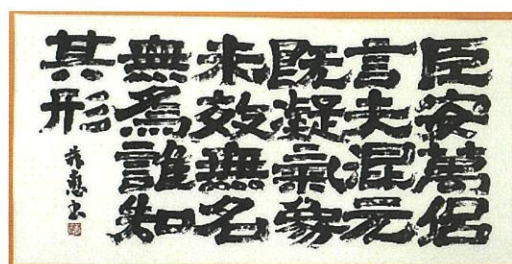 臣安萬侶
言夫混元
既凝氣象
未效無名
無為誰知
其形